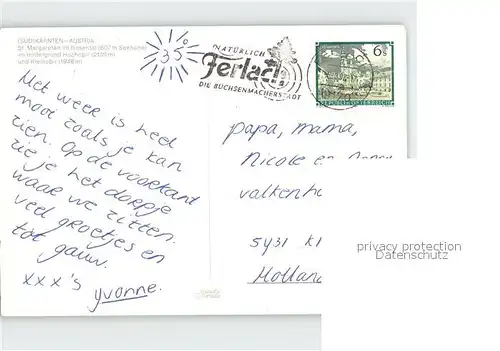 (SÜD)KÄRNTEN–AUSTRIA
St. Margarethen im Rosental (607 m Seehöhe)
im Hintergrund Hochobir (2139 m)
und Kleinobir (1948 m)
35°
NATÜRLICH
Ferlach
DIE BÜCHSENMACHERSTADT
6 S
REPUBLIK ÖSTERREICH
Het weer is heel
mooi zoals je kan
zien. Op de voorkant
zie je het dorpje
waar we zitten.
veel groetjes en
tot gauw.
xxx's yvonne.
papa, mama,
Nicole en
valkenh
5431 K
Hollan
privacy protection
Datenschutz